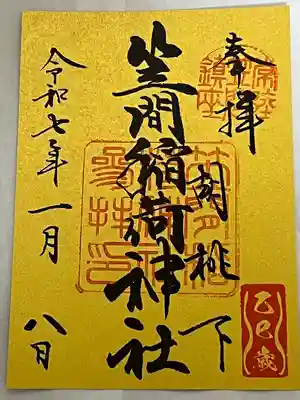 奉拝
胡桃下
笠間稲荷神社
令和七年一月八日
乙巳歳